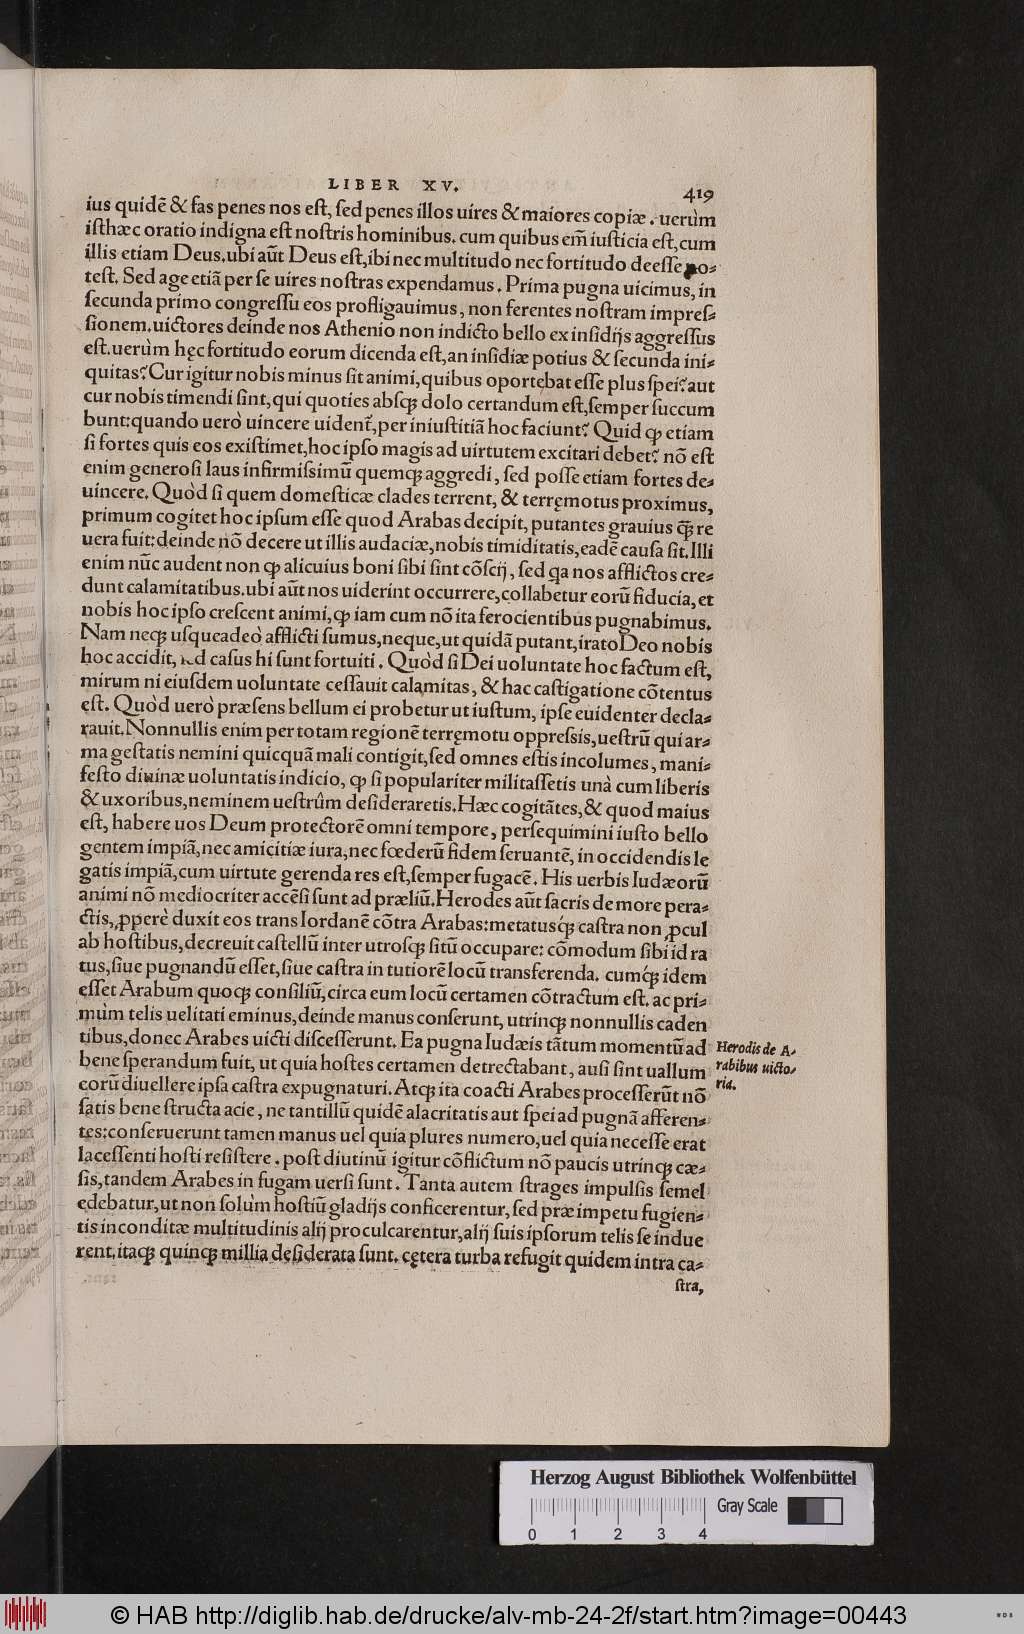 LIBER XV. 419
ius quidē & fas penes nos eſt, ſed penes illos uires & maiores copiæ. uerùm
iſthæc oratio indigna eſt noſtris hominibus. cum quibus em̄ iuſticia eſt, cum
illis etiam Deus. ubi aūt Deus eſt, ibi nec multitudo nec fortitudo deeſſe po⸗
teſt. Sed age etiā per ſe uires noſtras expendamus. Prima pugna uicimus, in
ſecunda primo congreſſu eos profligauimus, non ferentes noſtram impreſ⸗
ſionem. uictores deinde nos Athenio non indicto bello ex inſidijs aggreſſus
eſt. uerùm hęc fortitudo eorum dicenda eſt, an inſidiæ potius & ſecunda ini⸗
quitas? Cur igitur nobis minus ſit animi, quibus oportebat eſſe plus ſpei? aut
cur nobis timendi ſint, qui quoties abſqꝫ dolo certandum eſt, ſemper ſuccum
bunt: quando uerò uincere uident᷑, per iniuſtitiā hoc faciunt? Quid ꝙ etiam
ſi fortes quis eos exiſtimet, hoc ipſo magis ad uirtutem excitari debet? nō eſt
enim generoſi laus infirmiſsimū quemqꝫ aggredi, ſed poſſe etiam fortes de⸗
uincere. Quòd ſi quem domeſticæ clades terrent, & terręmotus proximus,
primum cogitet hoc ipſum eſſe quod Arabas decipit, putantes grauius q̄ꝫ re
uera fuit: deinde nō decere ut illis audaciæ, nobis timiditatis, eadē cauſa ſit. Illi
enim nūc audent non ꝙ alicuius boni ſibi ſint cōſcij, ſed qa nos afflictos cre⸗
dunt calamitatibus. ubi aūt nos uiderint occurrere, collabetur eorū fiducia, et
nobis hoc ipſo creſcent animi, ꝙ iam cum nō ita ferocientibus pugnabimus.
Nam neqꝫ uſqueadeò afflicti ſumus, neque, ut quidā putant, irato Deo nobis
hoc accidit, ſed caſus hi ſunt fortuiti. Quòd ſi Dei uoluntate hoc factum eſt,
mirum ni eiuſdem uoluntate ceſſauit calamitas, & hac caſtigatione cōtentus
eſt. Quòd uerò præſens bellum ei probetur ut iuſtum, ipſe euidenter decla⸗
rauit. Nonnullis enim per totam regionē terręmotu oppreſsis, ueſtrū qui ar⸗
ma geſtatis nemini quicquā mali contigit, ſed omnes eſtis incolumes, mani⸗
feſto diuinæ uoluntatis indicio, ꝙ ſi populariter militaſſetis unà cum liberis
& uxoribus, neminem ueſtrûm deſideraretis. Hæc cogitātes, & quod maius
eſt, habere uos Deum protectorē omni tempore, perſequimini iuſto bello
gentem impiā, nec amicitiæ iura, nec fœderū fidem ſeruantē, in occidendis le
gatis impiā, cum uirtute gerenda res eſt, ſemper fugacē. His uerbis Iudæorū
animi nō mediocriter accēſi ſunt ad præliū. Herodes aūt ſacris de more pera⸗
ctis, ꝓperè duxit eos trans Iordanē cōtra Arabas: metatusq́ꝫ caſtra non ꝓcul
ab hoſtibus, decreuit caſtellū inter utroſqꝫ ſitū occupare: cōmodum ſibi id ra
tus, ſiue pugnandū eſſet, ſiue caſtra in tutiorē locū transferenda. cumq́ꝫ idem
eſſet Arabum quoqꝫ conſiliū, circa eum locū certamen cōtractum eſt. ac pri⸗
mùm telis uelitati eminus, deinde manus conſerunt, utrinqꝫ nonnullis caden
tibus, donec Arabes uicti diſceſſerunt. Ea pugna Iudæis tātum momentū ad
bene ſperandum fuit, ut quia hoſtes certamen detrectabant, auſi ſint uallum
eorū diuellere ipſa caſtra expugnaturi. Atqꝫ ita coacti Arabes proceſſerūt nō
ſatis bene ſtructa acie, ne tantillū quidē alacritatis aut ſpei ad pugnā afferen⸗
tes: conſeruerunt tamen manus uel quia plures numero, uel quia neceſſe erat
laceſſenti hoſti reſiſtere. poſt diutinū igitur cōflictum nō paucis utrinqꝫ cæ⸗
ſis, tandem Arabes in fugam uerſi ſunt. Tanta autem ſtrages impulſis ſemel
edebatur, ut non ſolùm hoſtiū gladijs conficerentur, ſed præ impetu fugien⸗
tis inconditæ multitudinis alij proculcarentur, alij ſuis ipſorum telis ſe indue
rent. itaqꝫ quinqꝫ millia deſiderata ſunt. cętera turba refugit quidem intra ca⸗
ſtra,
Herodis de A⸗
rabibus uicto⸗
ria.
Herzog August Bibliothek Wolfenbüttel
Gray Scale
0 1 2 3 4
© HAB http://diglib.hab.de/drucke/alv-mb-24-2f/start.htm?image=00443